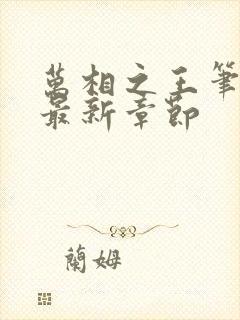 萬相之王筆
最新章節
蘭姆